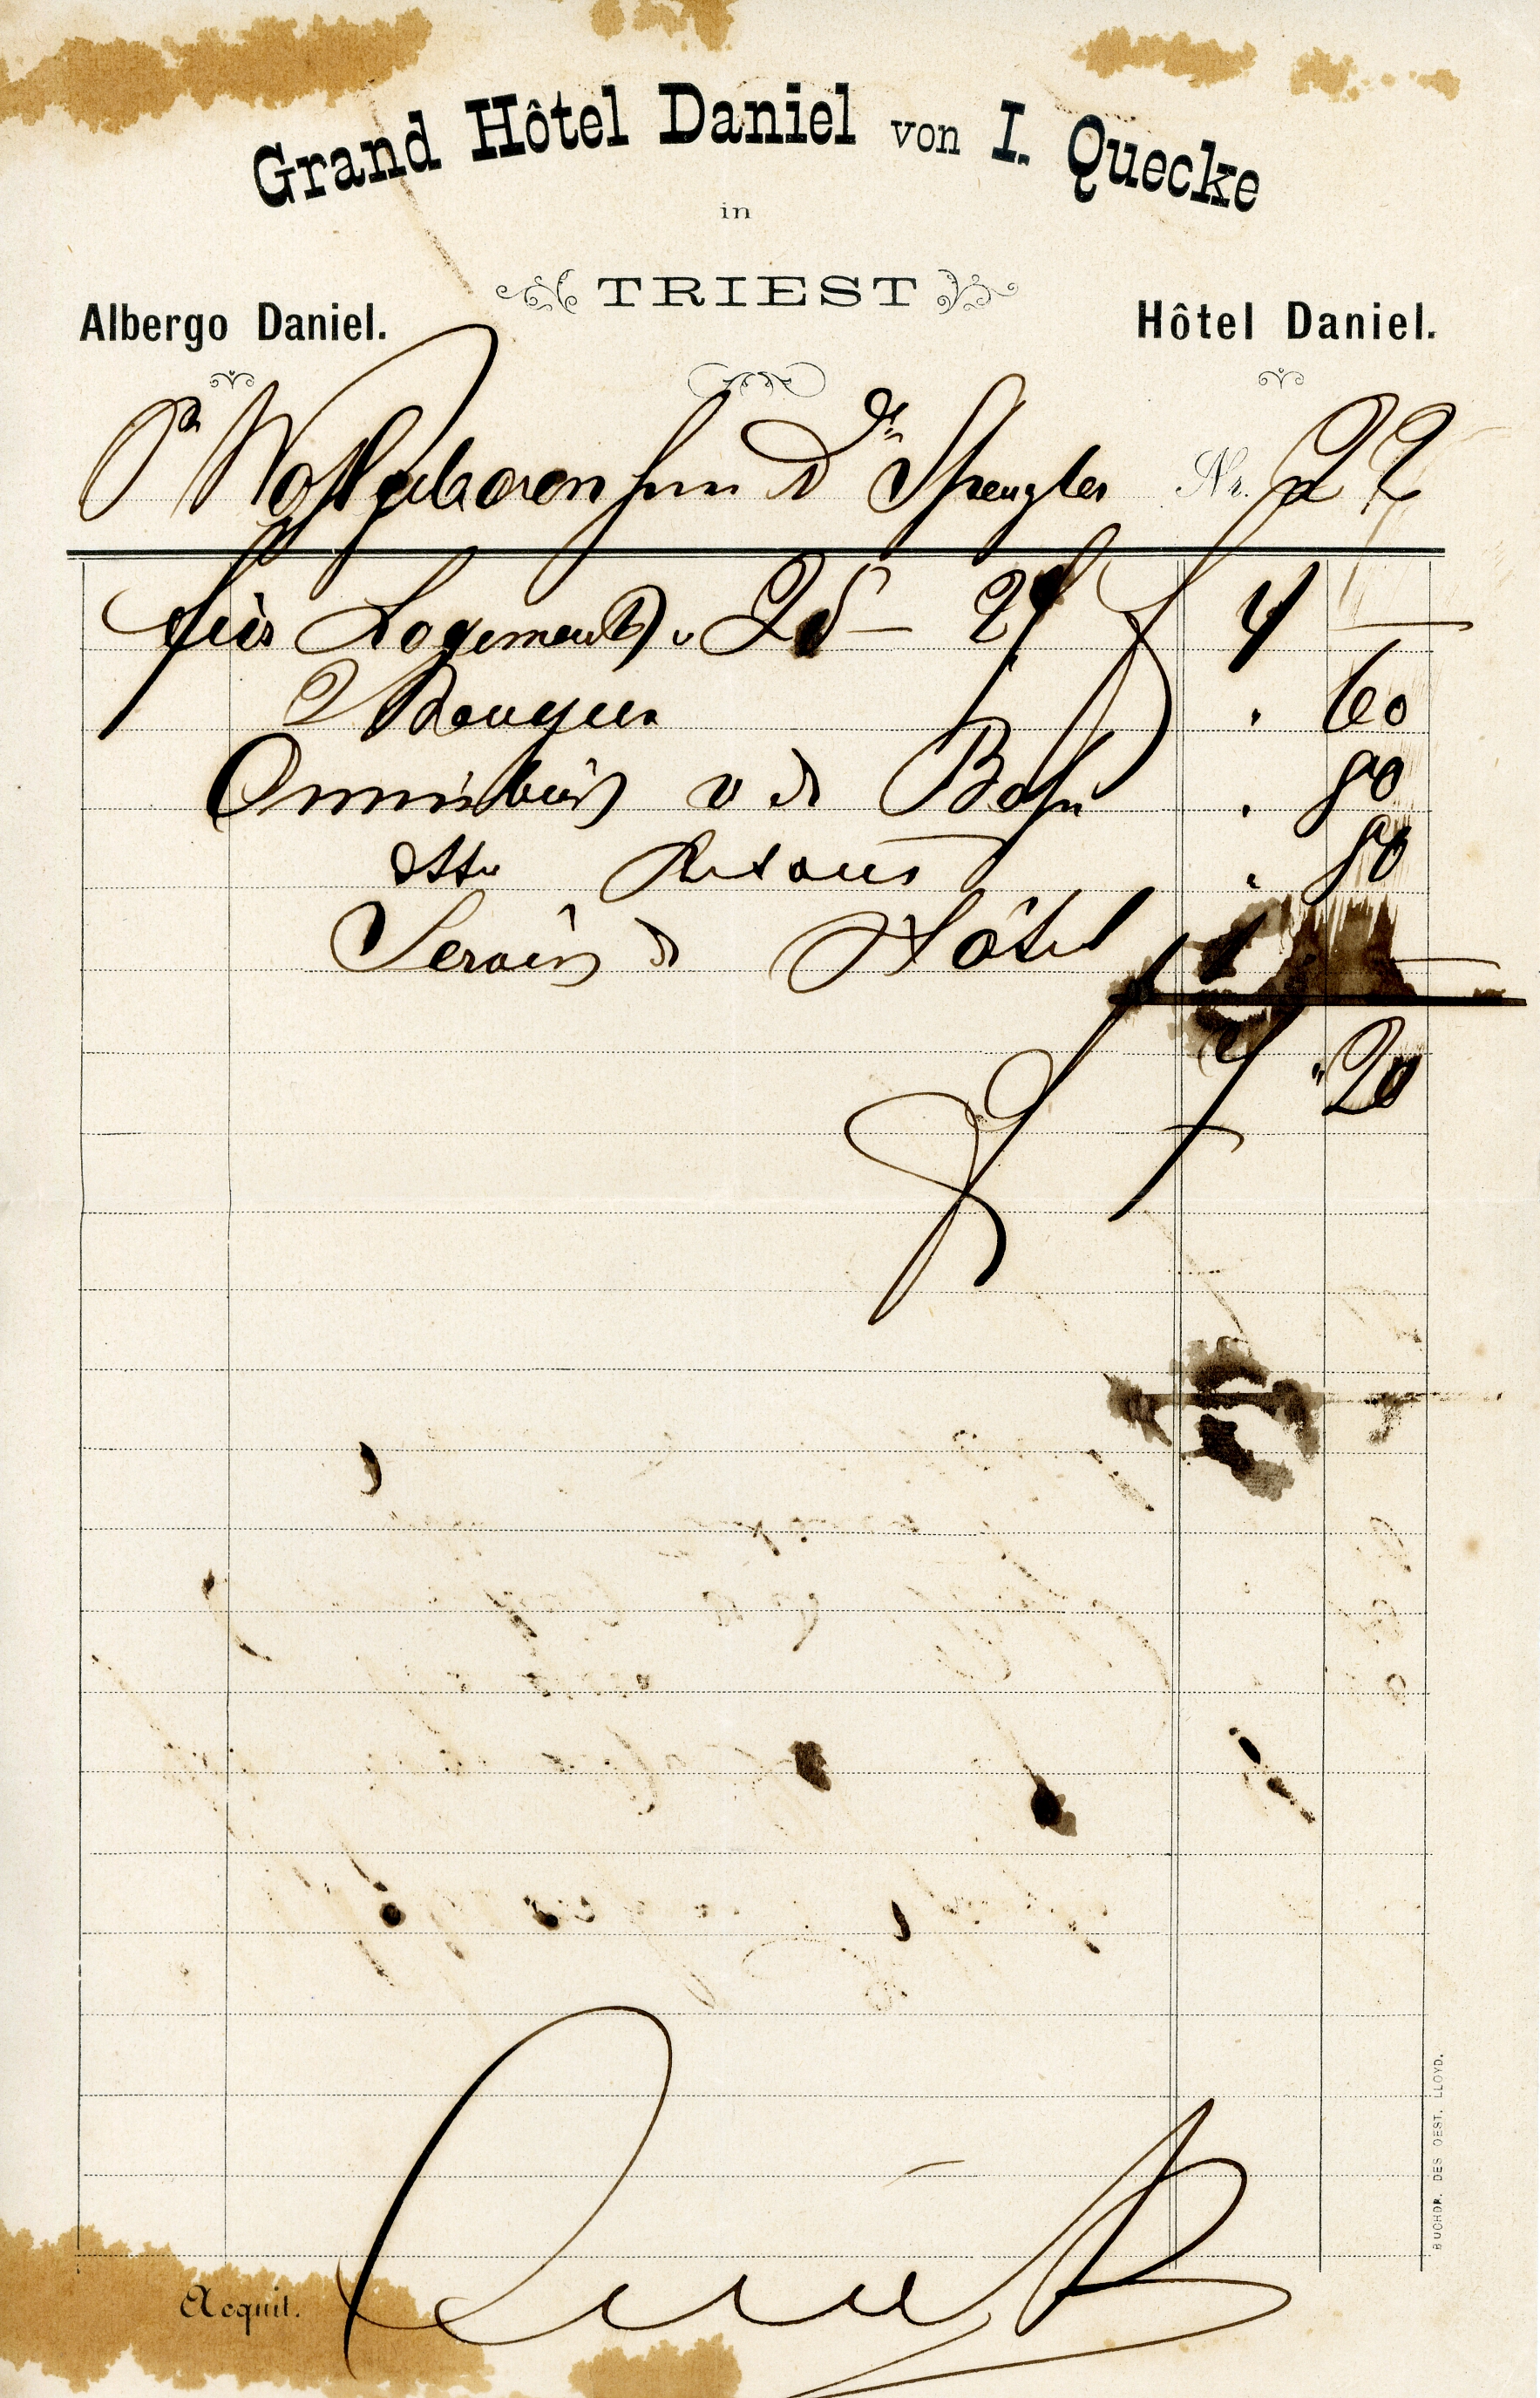 Grand Hôtel Daniel von I. Quecke
in
TRIEST
Albergo Daniel. Hôtel Daniel.
Sr Wohlgeboren Herrn Dr Spengler Nr. 22
für Logement v 25 – 27 f 4 –
2 Bougien . 60
Omnibus v d Bahn . 80
dtto Retour . 80
Servis d Hôtel 1 –
f 7 " 20
Acquit.
BUCHDR. DES OEST. LLOYD.